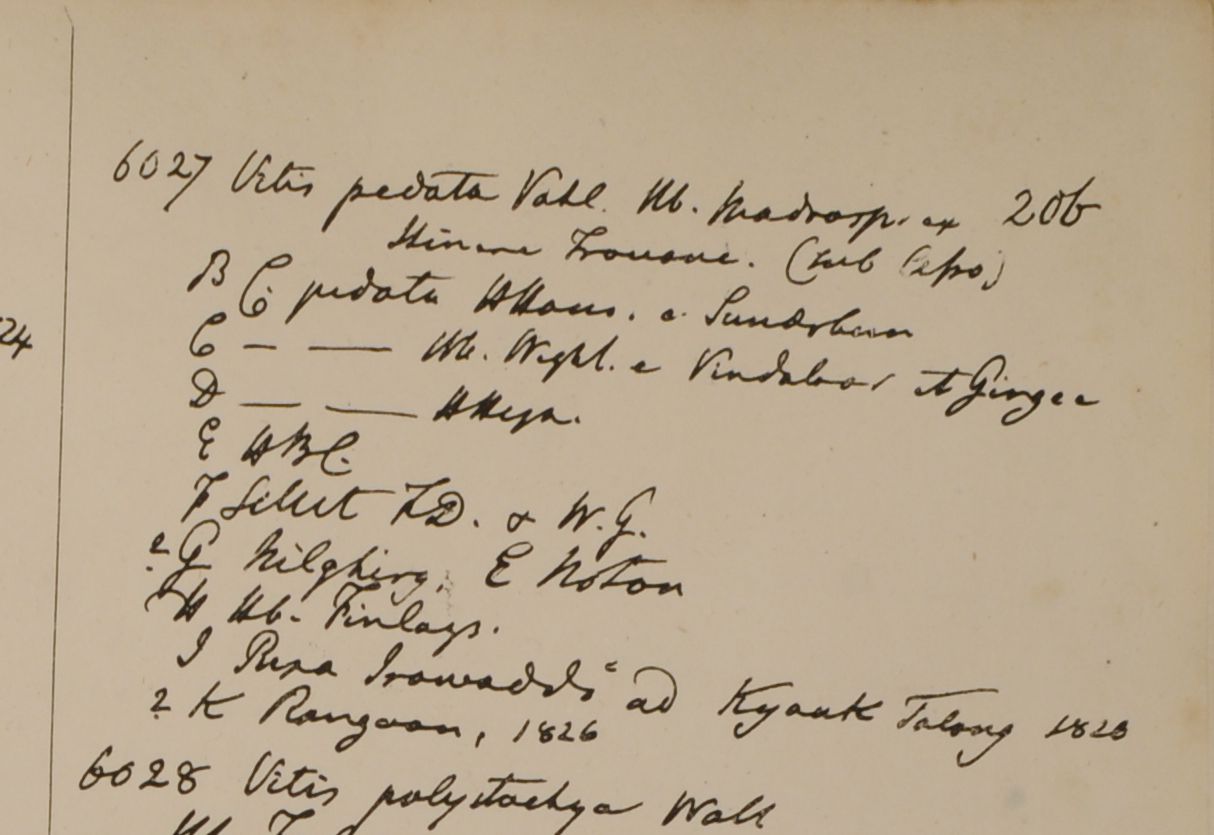 24
6027 Vitis pedata Vahl. Hb. Madrasp. ex 206
Itinere Trovanc. (sub Cisso)
B C. pedata HHam. e Sunderbun
C — — Hb. Wight. e Vindaloor et Gingee
D — — HHeyn.
E HBC.
F Silhet FD. & W.G.
? G Nilghiry, E Noton
H Hb. Finlays.
I Ripa Irawaddi ad Kyouk Talong
? K Rangoon, 1826
6028 Vitis polystachya Wall
Hb